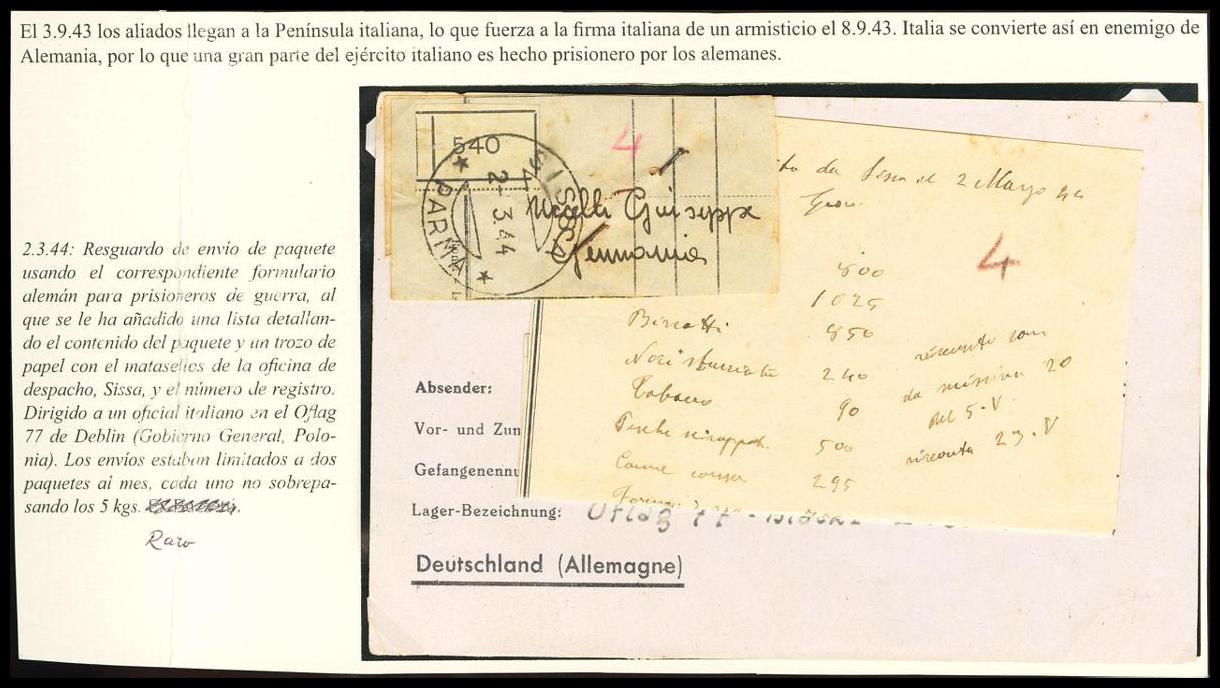 El 3.9.43 los aliados llegan a la Península italiana, lo que fuerza a la firma italiana de un armisticio el 8.9.43. Italia se convierte así en enemigo de
Alemania, por lo que una gran parte del ejército italiano es hecho prisionero por los alemanes.
2.3.44: Resguardo de envío de paquete
usando el correspondiente formulario
alemán para prisioneros de guerra, al
que se le ha añadido una lista detallan-
do el contenido del paquete y un trozo de
papel con el matasellos de la oficina de
despacho, Sissa, y el número de registro.
Dirigido a un oficial italiano en el Oflag
77 de Deblin (Gobierno General, Polo-
nia). Los envíos estaban limitados a dos
paquetes al mes, cada uno no sobrepa-
sando los 5 kgs.
Raro
540
4
SISSA
2-3.44
PARMA
Uccelli Giuseppe
Germania
da Sissa il 2 Marzo 44
4
500
1025
Biscotti 850
240
Tabacco 90
Pesche sciroppate 500
Carne 295
20
del 5-V
23-V
Absender:
Vor- und Zun
Gefangenennu
Lager-Bezeichnung: Oflag 77
Deutschland (Allemagne)